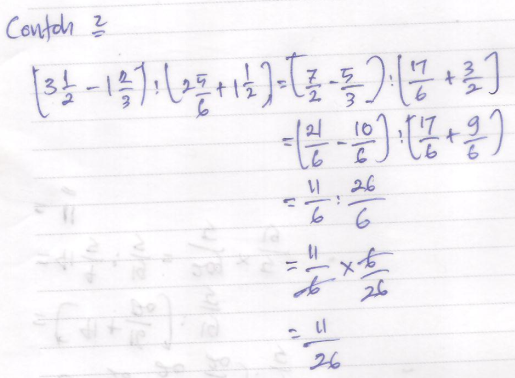 Contoh 2
[3 1/2 - 1 2/3] : [2 5/6 + 1 1/2] = [7/2 - 5/3] : [17/6 + 3/2]
= [21/6 - 10/6] : [17/6 + 9/6]
= 11/6 : 26/6
= 11/6 × 6/26
= 11/26